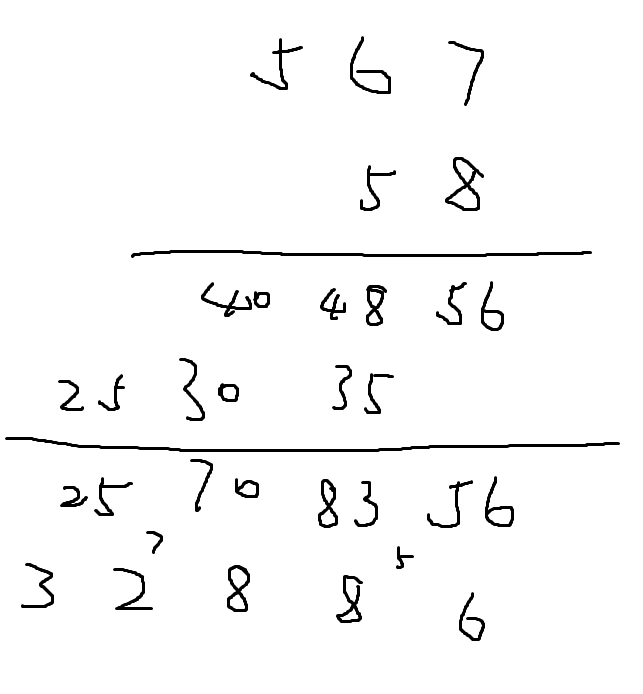 5 6 7
5 8
40 48 56
25 30 35
25 70 83 56
3 2 7 8 8 5 6